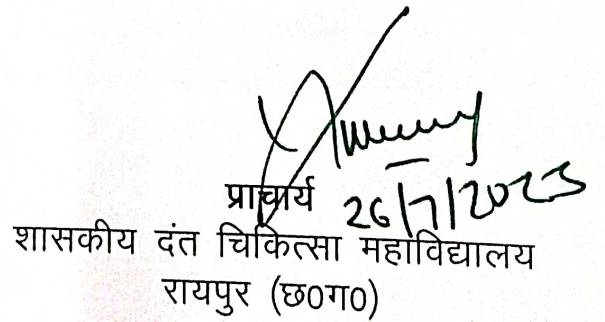 प्राचार्य 26/7/2023
शासकीय दंत चिकित्सा महाविद्यालय
रायपुर (छ0ग0)